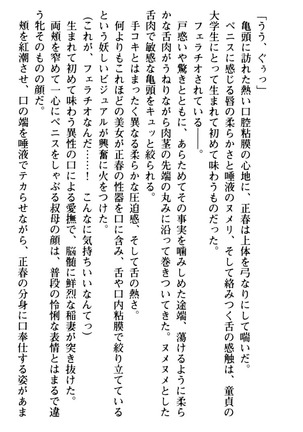 「うう、ぐぅっ」
　亀頭に訪れた熱い口腔粘膜の心地に、正春は上体を弓なりにして喘いだ。
　ペニスに感じる唇の柔らかさと唾液のヌメリ、そして絡みつく舌の感触は、童貞の
大学生にとって生まれて初めて味わうものだった。
　フェラチオされている――。
　戸惑いや驚きとともに、あらためてその事実を噛みしめた途端、蕩けるように柔ら
かな舌肉がうねりながら肉茎の先端の丸みに沿って巻きついてきた。ヌメヌメとした
舌肉で敏感な亀頭をキュッと絞られる。
　手コキとはまったく異なる柔らかな圧迫感、そして舌の熱さ。
　何よりもこれほどの美女が正春の性器を口に含み、舌や口内粘膜で絞り立てている
という妖しいビジュアルが興奮に火をつけた。
（これが、フェラチオなんだ……！　こんなに気持ちいいなんてっ）
　生まれて初めて味わう異性の口による愛撫で、脳髄に鮮烈な稲妻が突き抜けた。
　両頬を窄めて一心にペニスをしゃぶる叔母の顔は、普段の怜悧な表情とはまるで違
う牝そのものの顔だ。
　頬を紅潮させ、口の端を唾液でテカらせながら、正春の分身に口奉仕する姿があま